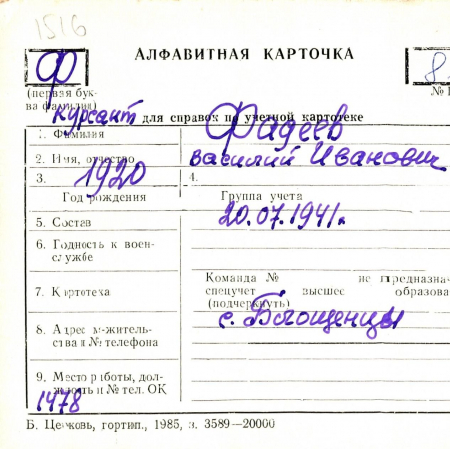 1516
АЛФАВИТНАЯ КАРТОЧКА
Ф
8
(первая бук-
ва фамилии)
№
Курсант для справок по учетной картотеке
1. Фамилия Фадеев
2. Имя, отчество Василий Иванович
3. 1920 4.
Год рождения Группа учета
5. Состав 20.07.1941г.
6. Годность к воен-
службе
Команда № не предназна
7. Картотека спецучет высшее образова
(подчеркнуть)
8. Адрес м-жительс-
тва и № телефона
9. Место работы, дол-
жность и № тел. ОК
1478
Б. Церковь, гортип., 1985, з. 3589—20000